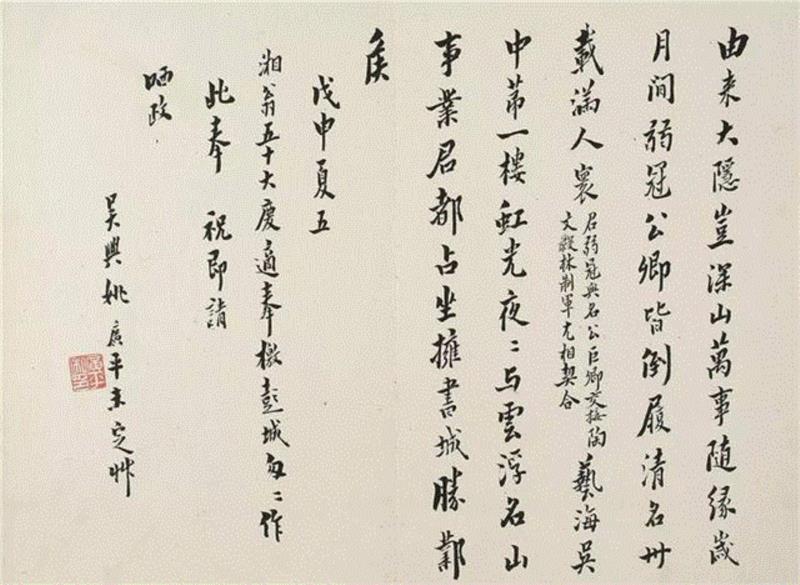 由来大隱豈深山萬事随緣歲
月間弱冠公卿皆倒履清名卅
載滿人寰
君弱冠與名公巨卿交接陶
文毅林制軍尤相契合
藝海吳
中苐一樓虹光夜〻与雲浮名山
事業君都占坐擁書城勝鄴
矦
戊申夏五
湘翁五十大慶適奉檄彭城匆〻作
此奉 祝即請
哂政
吳興姚廣平未定艸